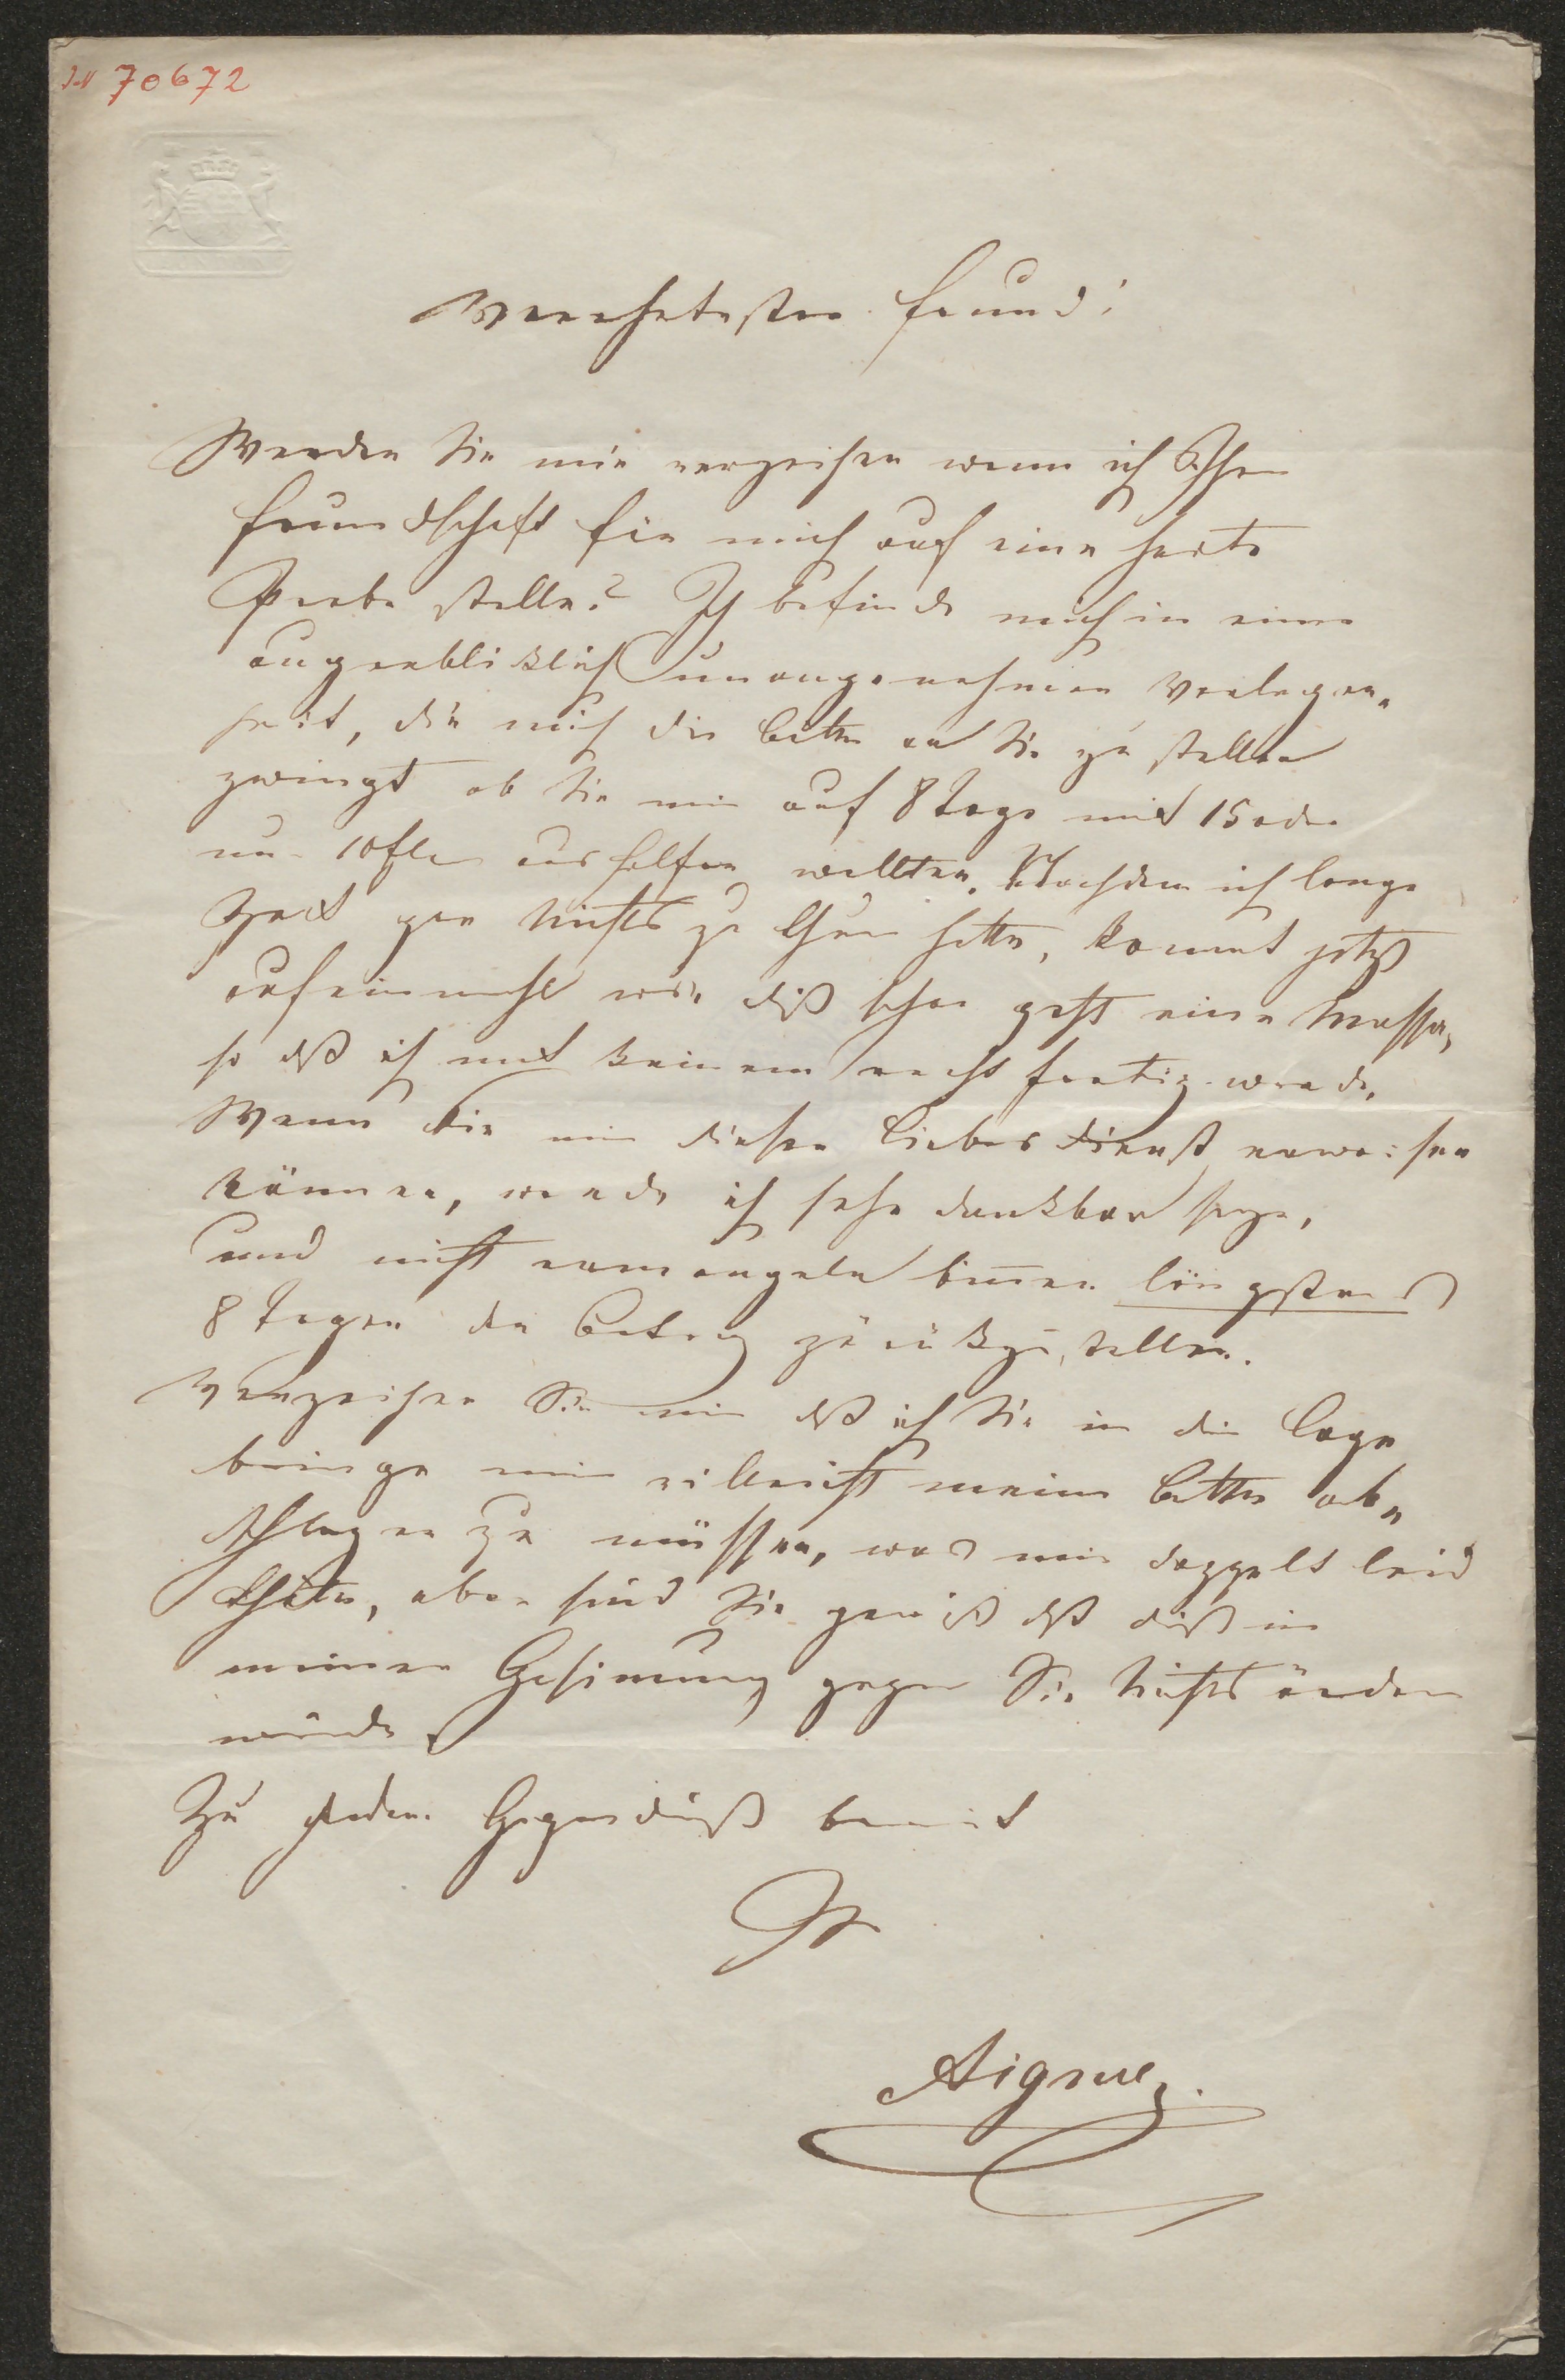 J.N 70672
Verehrtester Freund!
Werden Sie mir verzeihen wenn ich Ihre
Freundschaft für mich auf eine harte
Probe stelle? Ich befinde mich in einer
augenbliklich unangenehmen Verlegen-
heit, die mich die Bitte an Sie zu stellen
zwingt ob Sie mir auf 8 Tage mit 15 oder
nur 10 fl aushelfen wollten. Nachdem ich lange
Zeit gar Nichts zu thun hatte, kommt jetzt
auf einmahl wie diß schon geht eine Masse,
so dß ich mit keinem recht fertig werde.
Wenn Sie mir diesen Liebesdienst erweisen
können, werde ich sehr dankbar seyn,
und nicht ermangeln binnen längstens
8 Tagen den Betrag zurükzustellen.
Verzeihen Sie mir dß ich Sie in die Lage
bringe mir vileicht meine Bitte ab-
schlagen zu müssen, was mir doppelt leid
thäte, aber sind Sie gewiß dß diß in
meiner Gesinnung gegen Sie Nichts ändern
würde.
Zu jedem Gegendienst bereit
Ihr
Aigner.